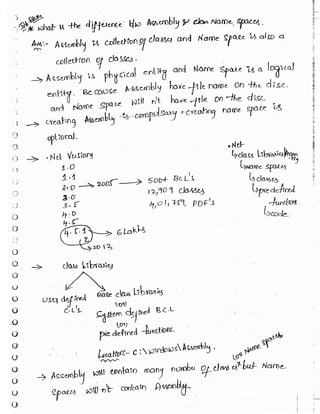 * What is the difference b/w Assembly & class Name, Spaces.
Ans:- Assembly is collection of classes and Name Space is also a
collection of classes.
→ Assembly is physical entity and Name Space is a logical
entity. Because Assembly have file name on the disc.
and Name Space will n't have file on the disc.
→ creating Assembly is compulsary & creating name space is
optional.
→ .Net Versions
1.0
1.1
2.0 → 2005 → 500+ BCL's
3.0 12,909 classes
3.5 4,01,759, PDF's
4.0
4.5
4.5.1 → 6 Lakhs
2012
.Net
class Libraries
Name spaces
classes
pre defined
functions
code.
→ class Libraries
User defined
C.L's
Base class Libraries
(or)
System defined B.C.L
(or)
pre defined functions.
Location:- C:\windows\Assembly.
→ Assembly will contain many number of classes (or) Name spaces but Name
Spaces will n't contain Assembly.